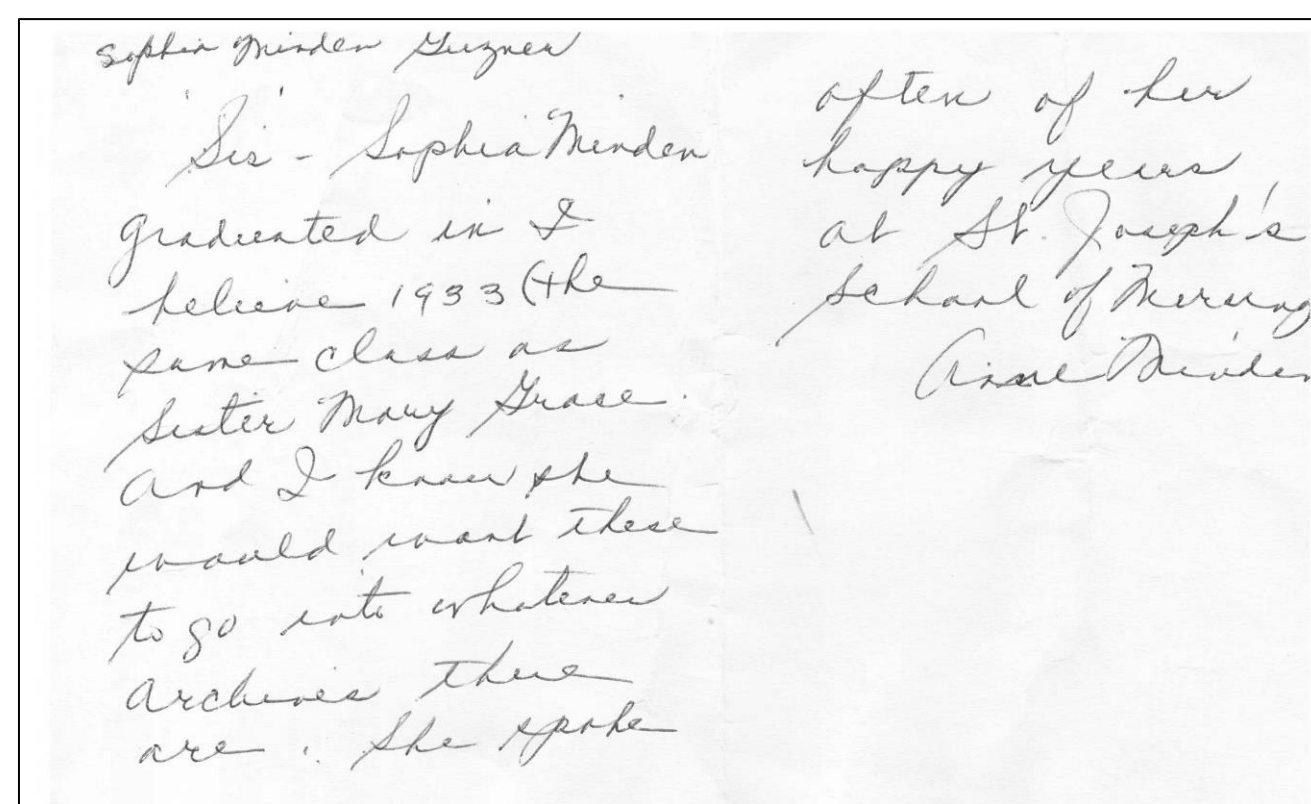 Sophia Minden Guzner
"Sis" - Sophia Minden
graduated in I
believe 1933 (the
same class as
Sister Mary Grace.
And I know she
would want these
to go into whatever
archives there
are. She spoke
often of her
happy years
at St. Joseph's
School of Nursing
Anne Minden